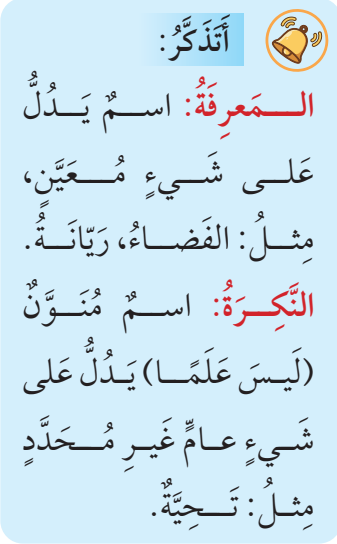 أَتَذَكَّرُ:
الـمَعرِفَةُ: اسـمٌ يَـدُلُّ
عَلـى شَـيءٍ مُـعَيَّنٍ،
مِثـلُ: الفَضـاءُ، رَيّانَـةُ.
النَّكِـرَةُ: اسـمٌ مُنَـوَّنٌ
(لَيـسَ عَلَمًـا) يَـدُلُّ عَلى
شَـيءٍ عـامٍّ غَيـرِ مُـحَدَّدٍ
مِثـلُ: تَـحِيَّةٌ.